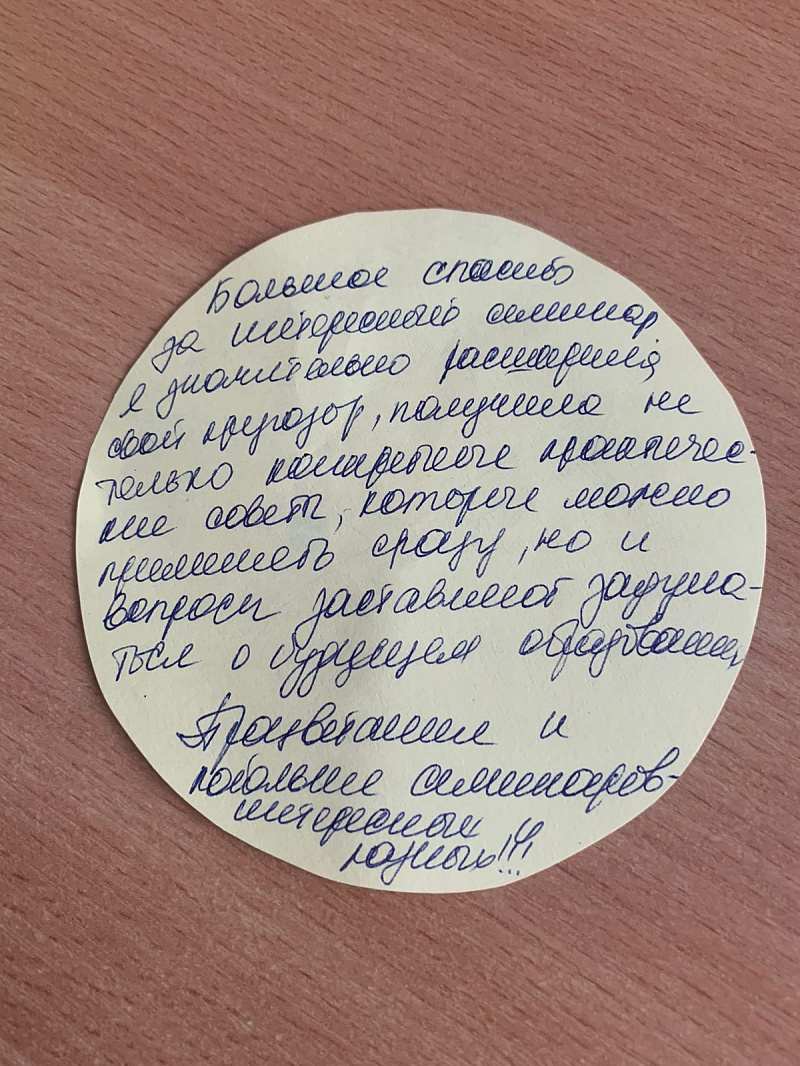 Большое спасибо
за интересный семинар
я значительно расширила
свой кругозор, получила не
только конкретные практичес-
кие советы, которые можно
применять сразу, но и
вопросы заставляют задума-
ться о будущем образования
Процветания и
побольше семинаров-
интересных
разных!!!